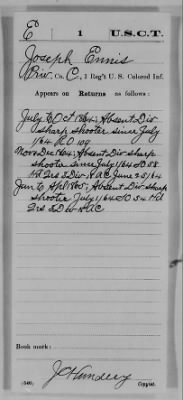 E | 1 | U.S.C.T.
Joseph Ennis
Prv., Co. C, 1 Reg't U. S. Colored Inf.
Appears on Returns as follows:
July to Oct 1864, Absent Div
sharp shooter since July
1/64 R.O 109
Nov & Dec 1864; Absent Div sharp
shooter since July 1/64 SO 58
Hd Qrs 3 Div, 18 AC June 25/64
Jan to Apl 1865; Absent Div sharp
shooter July 1/64 SO 54 Hd
Qrs 3 Div 18 AC
Book mark:
(546)
Copyist.